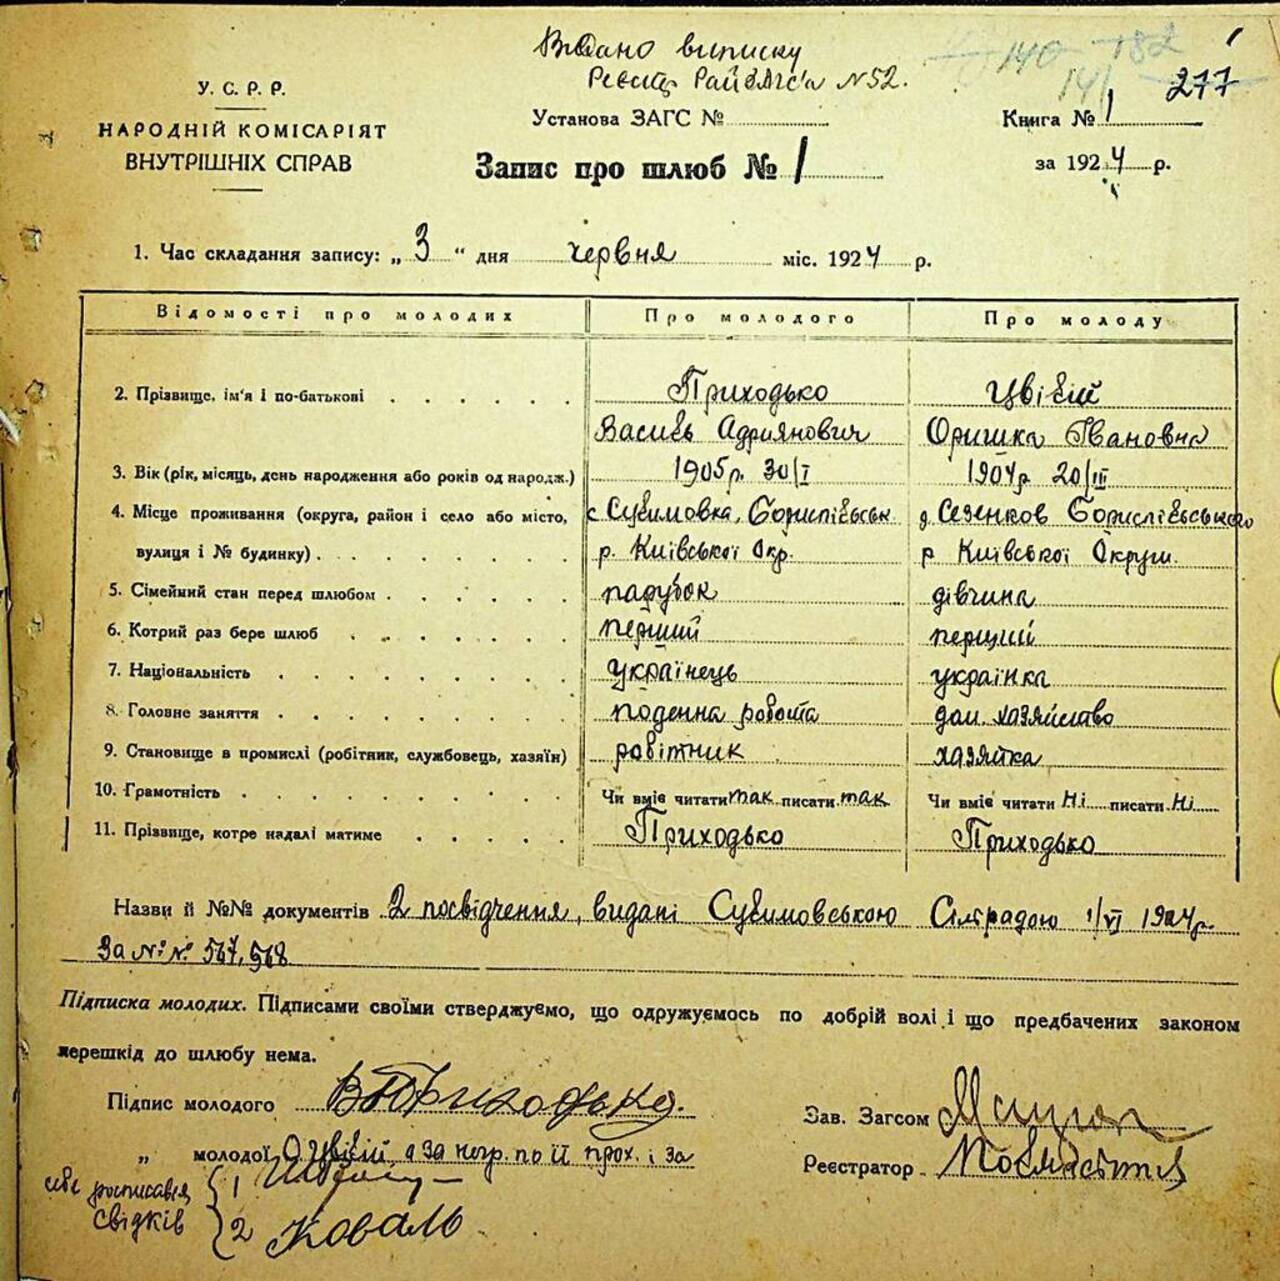 Видано виписку
РайЗАГС'а №52.
140 182
141
277
У. С. Р. Р.
НАРОДНІЙ КОМІСАРІЯТ
ВНУТРІШНІХ СПРАВ
Установа ЗАГС №
Запис про шлюб № 1
Книга № 1
за 1924 р.
1. Час складання запису: „3“ дня червня міс. 1924 р.
Відомості про молодих Про молодого Про молоду
2. Прізвище, ім'я і по-батькові Приходько Цвілій
Василь Адриянович Оришка Івановна
3. Вік (рік, місяць, день народження або років од народж.) 1905р. 30/I 1904р 20/III
4. Місце проживання (округа, район і село або місто, с Сулимовка, Бориспільськ. д. Сезенков Бориспільського
вулиця і № будинку) р. Київської Окр. р Київської Округи.
5. Сімейний стан перед шлюбом парубок дівчина
6. Котрий раз бере шлюб перший перший
7. Національність українець українка
8. Головне заняття поденна робота дом. хазяйство
9. Становище в промислі (робітник, службовець, хазяїн) робітник хазяйка
10. Грамотність Чи вміє читати так писати так Чи вміє читати Ні писати Ні
11. Прізвище, котре надалі матиме Приходько Приходько
Назви й №№ документів 2 посвідчення, видані Сулимовською Сільрадою 1/VI 1924р.
За №№ 567, 568
Підписка молодих. Підписами своїми стверджуємо, що одружуємось по добрій волі і що предбачених законом
перешкід до шлюбу нема.
Підпис молодого В Приходько.
Зав. Загсом
„ молодої О Цвілій, а за негр. по її прох. і за
Реєстратор
себе росписався 1
свідків 2 Коваль